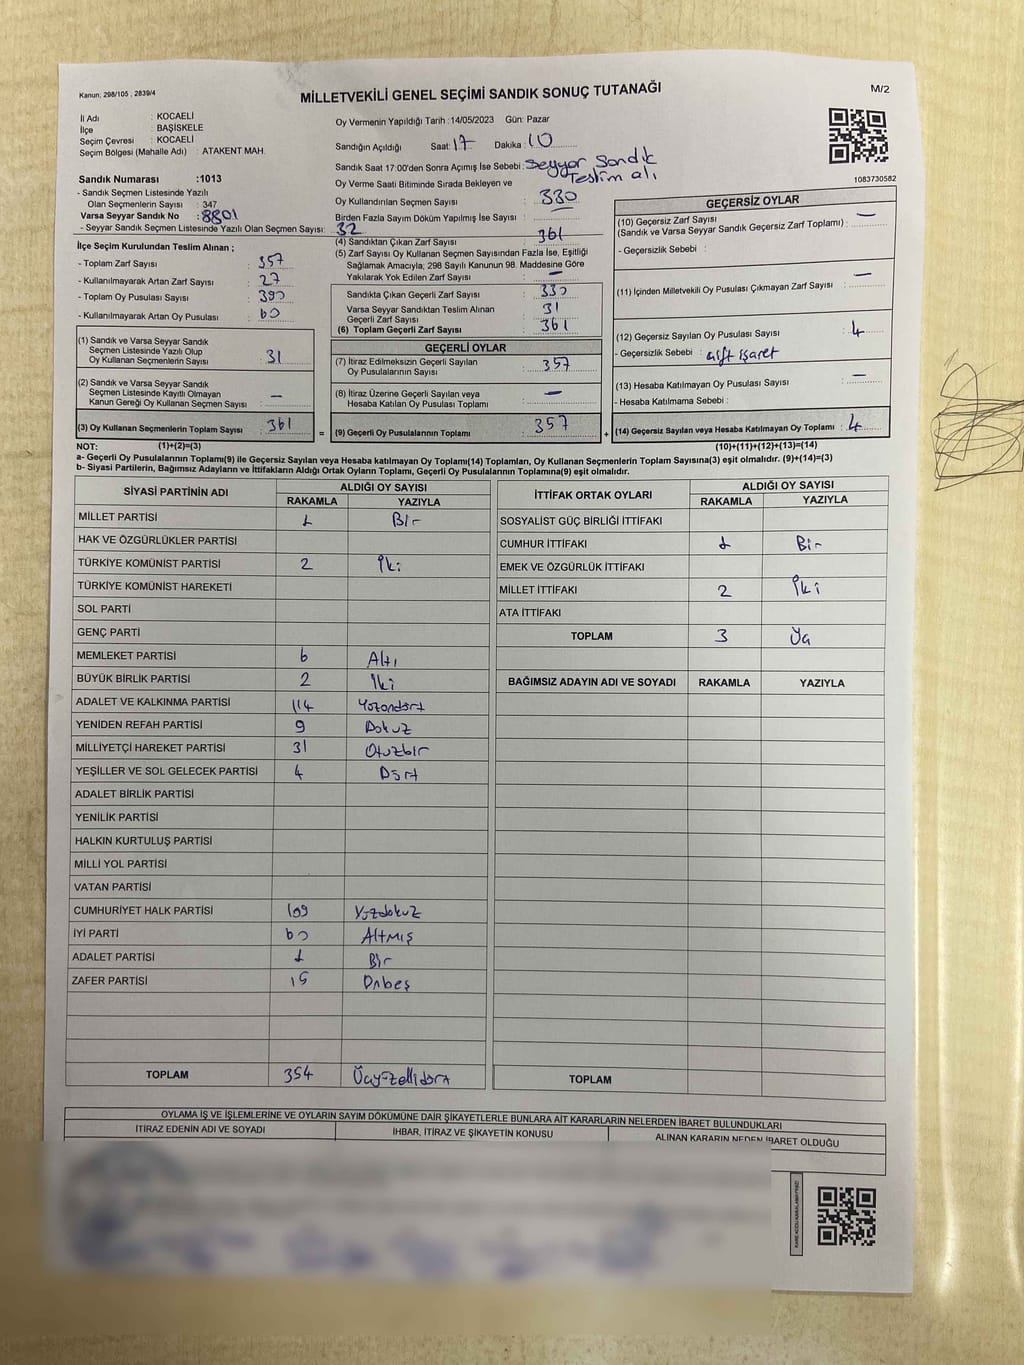 Kanun; 298/105 , 2839/4
MİLLETVEKİLİ GENEL SEÇİMİ SANDIK SONUÇ TUTANAĞI
M/2
İl Adı : KOCAELİ
İlçe : BAŞİSKELE
Seçim Çevresi : KOCAELİ
Seçim Bölgesi (Mahalle Adı) : ATAKENT MAH.
Sandık Numarası :1013
- Sandık Seçmen Listesinde Yazılı
Olan Seçmenlerin Sayısı : 347
Varsa Seyyar Sandık No : 8801
- Seyyar Sandık Seçmen Listesinde Yazılı Olan Seçmen Sayısı: 32
İlçe Seçim Kurulundan Teslim Alınan ;
- Toplam Zarf Sayısı : 357
- Kullanılmayarak Artan Zarf Sayısı : 27
- Toplam Oy Pusulası Sayısı : 390
- Kullanılmayarak Artan Oy Pusulası : 60
(1) Sandık ve Varsa Seyyar Sandık
Seçmen Listesinde Yazılı Olup
Oy Kullanan Seçmenlerin Sayısı : 31
(2) Sandık ve Varsa Seyyar Sandık
Seçmen Listesinde Kayıtlı Olmayan
Kanun Gereği Oy Kullanan Seçmen Sayısı : —
(3) Oy Kullanan Seçmenlerin Toplam Sayısı : 361
Oy Vermenin Yapıldığı Tarih :14/05/2023 Gün: Pazar
Sandığın Açıldığı Saat: 17 Dakika : 10
Sandık Saat 17:00'den Sonra Açımış İse Sebebi : Seyyar Sandık
Teslim alı
Oy Verme Saati Bitiminde Sırada Bekleyen ve
Oy Kullandırılan Seçmen Sayısı : 330
Birden Fazla Sayım Döküm Yapılmış İse Sayısı :
(4) Sandıktan Çıkan Zarf Sayısı : 361
(5) Zarf Sayısı Oy Kullanan Seçmen Sayısından Fazla İse, Eşitliği
Sağlamak Amacıyla; 298 Sayılı Kanunun 98. Maddesine Göre
Yakılarak Yok Edilen Zarf Sayısı : —
Sandıkta Çıkan Geçerli Zarf Sayısı : 330
Varsa Seyyar Sandıktan Teslim Alınan
Geçerli Zarf Sayısı : 31
(6) Toplam Geçerli Zarf Sayısı : 361
GEÇERLİ OYLAR
(7) İtiraz Edilmeksizin Geçerli Sayılan
Oy Pusulalarının Sayısı : 357
(8) İtiraz Üzerine Geçerli Sayılan veya
Hesaba Katılan Oy Pusulası Toplamı : —
= (9) Geçerli Oy Pusulalarının Toplamı : 357
1083730582
GEÇERSİZ OYLAR
(10) Geçersiz Zarf Sayısı
(Sandık ve Varsa Seyyar Sandık Geçersiz Zarf Toplamı) : —
- Geçersizlik Sebebi :
(11) İçinden Milletvekili Oy Pusulası Çıkmayan Zarf Sayısı : —
(12) Geçersiz Sayılan Oy Pusulası Sayısı : 4
- Geçersizlik Sebebi : çift işaret
(13) Hesaba Katılmayan Oy Pusulası Sayısı : —
- Hesaba Katılmama Sebebi :
+ (14) Geçersiz Sayılan veya Hesaba Katılmayan Oy Toplamı : 4
NOT: (1)+(2)=(3)
(10)+(11)+(12)+(13)=(14)
a- Geçerli Oy Pusulalarının Toplamı(9) ile Geçersiz Sayılan veya Hesaba Katılmayan Oy Toplamı(14) Toplamları, Oy Kullanan Seçmenlerin Toplam Sayısına(3) eşit olmalıdır. (9)+(14)=(3)
b- Siyasi Partilerin, Bağımsız Adayların ve İttifakların Aldığı Ortak Oyların Toplamı, Geçerli Oy Pusulalarının Toplamına(9) eşit olmalıdır.
SİYASİ PARTİNİN ADI ALDIĞI OY SAYISI
RAKAMLA YAZIYLA
MİLLET PARTİSİ 1 Bir
HAK VE ÖZGÜRLÜKLER PARTİSİ
TÜRKİYE KOMÜNİST PARTİSİ 2 İki
TÜRKİYE KOMÜNİST HAREKETİ
SOL PARTİ
GENÇ PARTİ
MEMLEKET PARTİSİ 6 Altı
BÜYÜK BİRLİK PARTİSİ 2 İki
ADALET VE KALKINMA PARTİSİ 114 Yüzondört
YENİDEN REFAH PARTİSİ 9 Dokuz
MİLLİYETÇİ HAREKET PARTİSİ 31 Otuzbir
YEŞİLLER VE SOL GELECEK PARTİSİ 4 Dört
ADALET BİRLİK PARTİSİ
YENİLİK PARTİSİ
HALKIN KURTULUŞ PARTİSİ
MİLLİ YOL PARTİSİ
VATAN PARTİSİ
CUMHURİYET HALK PARTİSİ 109 Yüzdokuz
İYİ PARTİ 60 Altmış
ADALET PARTİSİ 1 Bir
ZAFER PARTİSİ 15 Onbeş
TOPLAM 354 Üçyüzellidört
İTTİFAK ORTAK OYLARI ALDIĞI OY SAYISI
RAKAMLA YAZIYLA
SOSYALİST GÜÇ BİRLİĞİ İTTİFAKI
CUMHUR İTTİFAKI 1 Bir
EMEK VE ÖZGÜRLÜK İTTİFAKI
MİLLET İTTİFAKI 2 İki
ATA İTTİFAKI
TOPLAM 3 Üç
BAĞIMSIZ ADAYIN ADI VE SOYADI RAKAMLA YAZIYLA
TOPLAM
OYLAMA İŞ VE İŞLEMLERİNE VE OYLARIN SAYIM DÖKÜMÜNE DAİR ŞİKAYETLERLE BUNLARA AİT KARARLARIN NELERDEN İBARET BULUNDUKLARI
İTİRAZ EDENİN ADI VE SOYADI İHBAR, İTİRAZ VE ŞİKAYETİN KONUSU ALINAN KARARIN NEDEN İBARET OLDUĞU